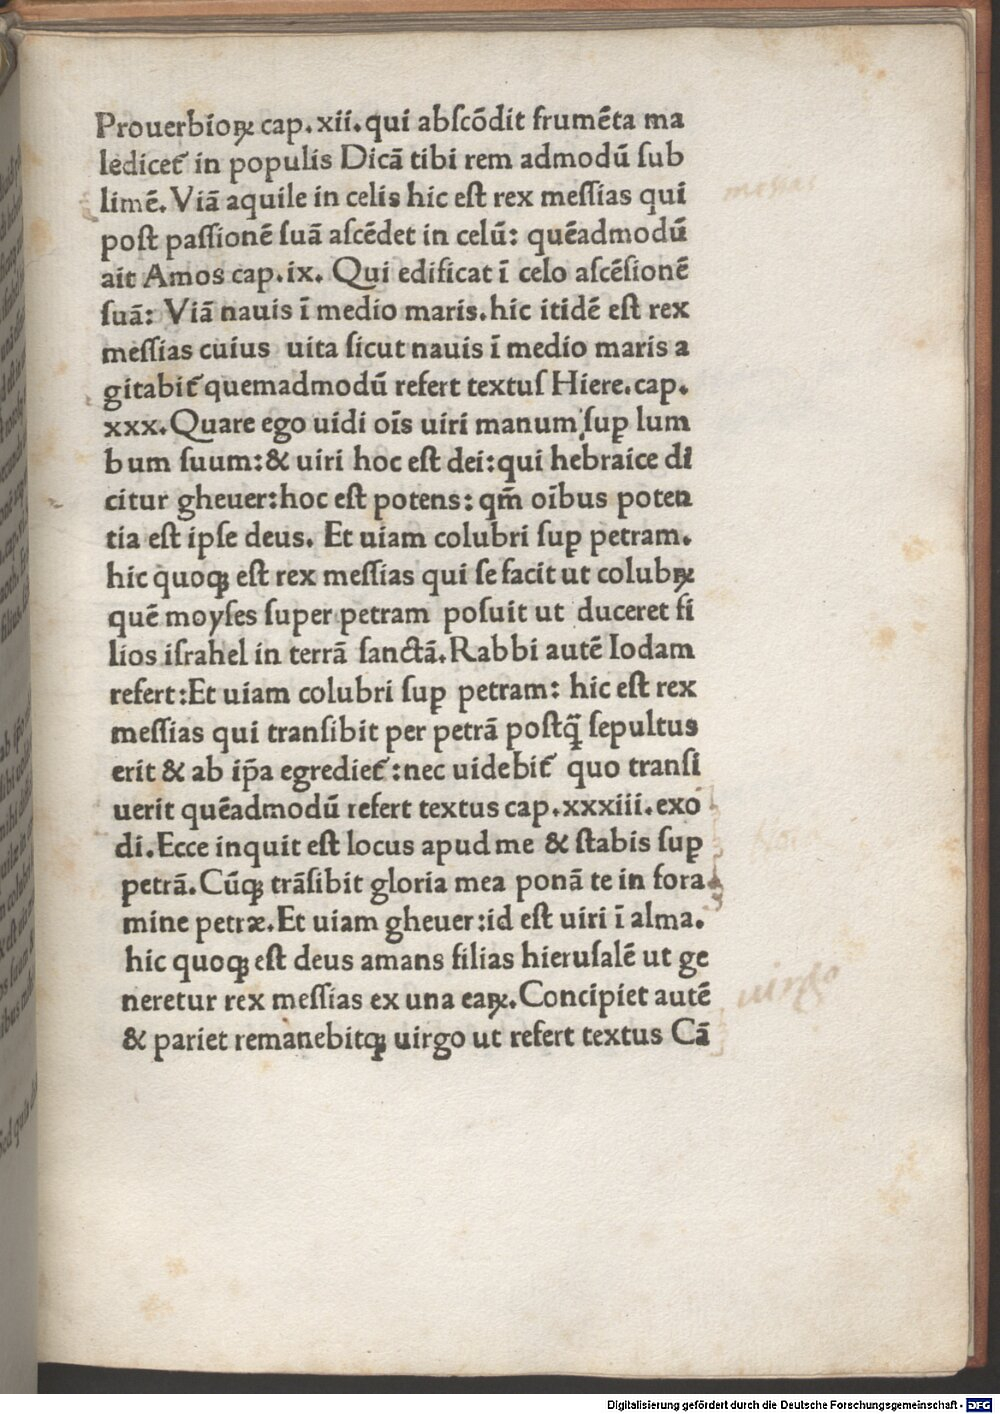 Prouerbioꝝ cap.xii.qui abſcōdit frumēta ma
ledicet᷑ in populis Dicā tibi rem admodū ſub
limē.Viā aquile in celis hic eſt rex meſſias qui
poſt paſſionē ſuā aſcēdet in celū: quēadmodū
ait Amos cap.ix. Qui edificat ī celo aſcēſionē
ſuā: Viā nauis ī medio maris.hic itidē eſt rex
meſſias cuius uita ſicut nauis ī medio maris a
gitabit᷑ quemadmodū refert textuſ Hiere.cap.
xxx.Quare ego uidi oīs uiri manum ſuꝑ lum
bum ſuum:& uiri hoc eſt dei:qui hebraice di
citur gheuer:hoc eſt potens: qm̄ oībus poten
tia eſt ipſe deus. Et uiam colubri ſuꝑ petram.
hic quoqꝫ eſt rex meſſias qui ſe facit ut colubꝝ
quē moyſes ſuper petram poſuit ut duceret fi
lios iſrahel in terrā ſanctā.Rabbi autē Iodam
refert:Et uiam colubri ſuꝑ petram: hic eſt rex
meſſias qui tranſibit per petrā poſtq̄ ſepultus
erit & ab ip̄a egrediet᷑:nec uidebit᷑ quo tranſi
uerit quēadmodū refert textus cap.xxxiii.exo
di.Ecce inquit eſt locus apud me & ſtabis ſuꝑ
petrā.Cūqꝫ trāſibit gloria mea ponā te in fora
mine petræ.Et uiam gheuer:id eſt uiri ī alma.
hic quoqꝫ eſt deus amans filias hieruſalē ut ge
neretur rex meſſias ex una eaꝝ.Concipiet autē
& pariet remanebitqꝫ uirgo ut refert textus Cā
uirgo
Digitalisierung gefördert durch die Deutsche Forschungsgemeinschaft - DFG